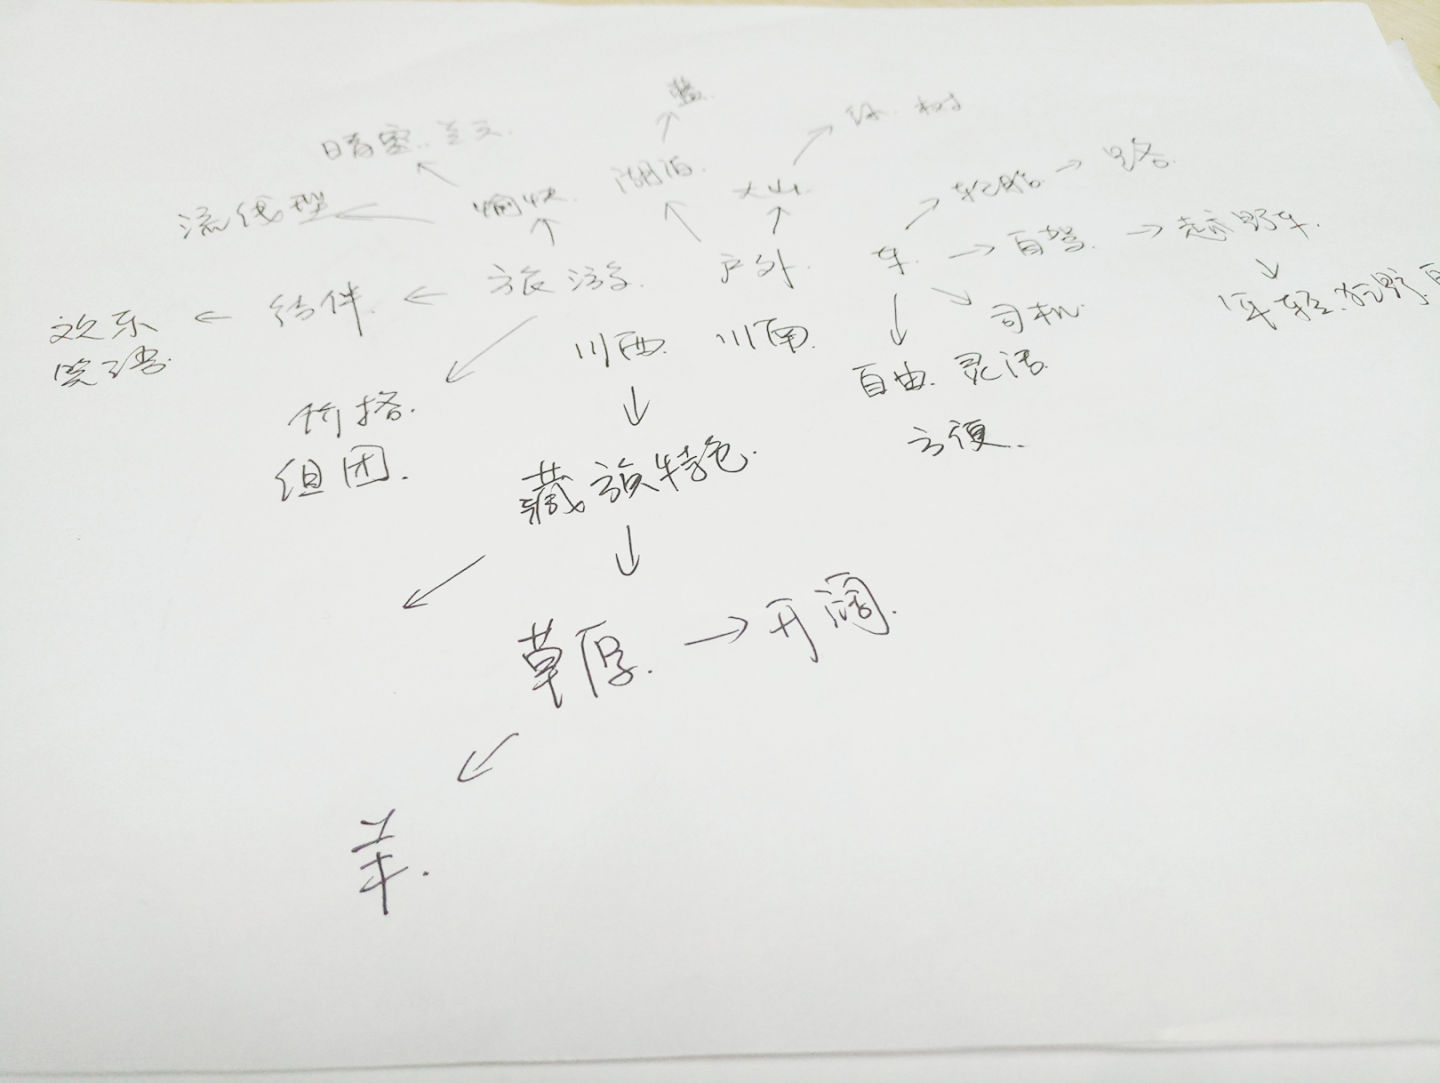 蓝.
绿. 树
暗
湖泊.
大山.
轮胎. → 路.
流线型
愉快.
车. → 自驾. → 越野车.
欢乐 ← 结伴. ← 旅游. 户外.
笑语.
司机.
年轻.
川西. 川南.
自由. 灵活.
方便.
价格.
组团.
藏族特色.
草原. → 开阔.
羊.